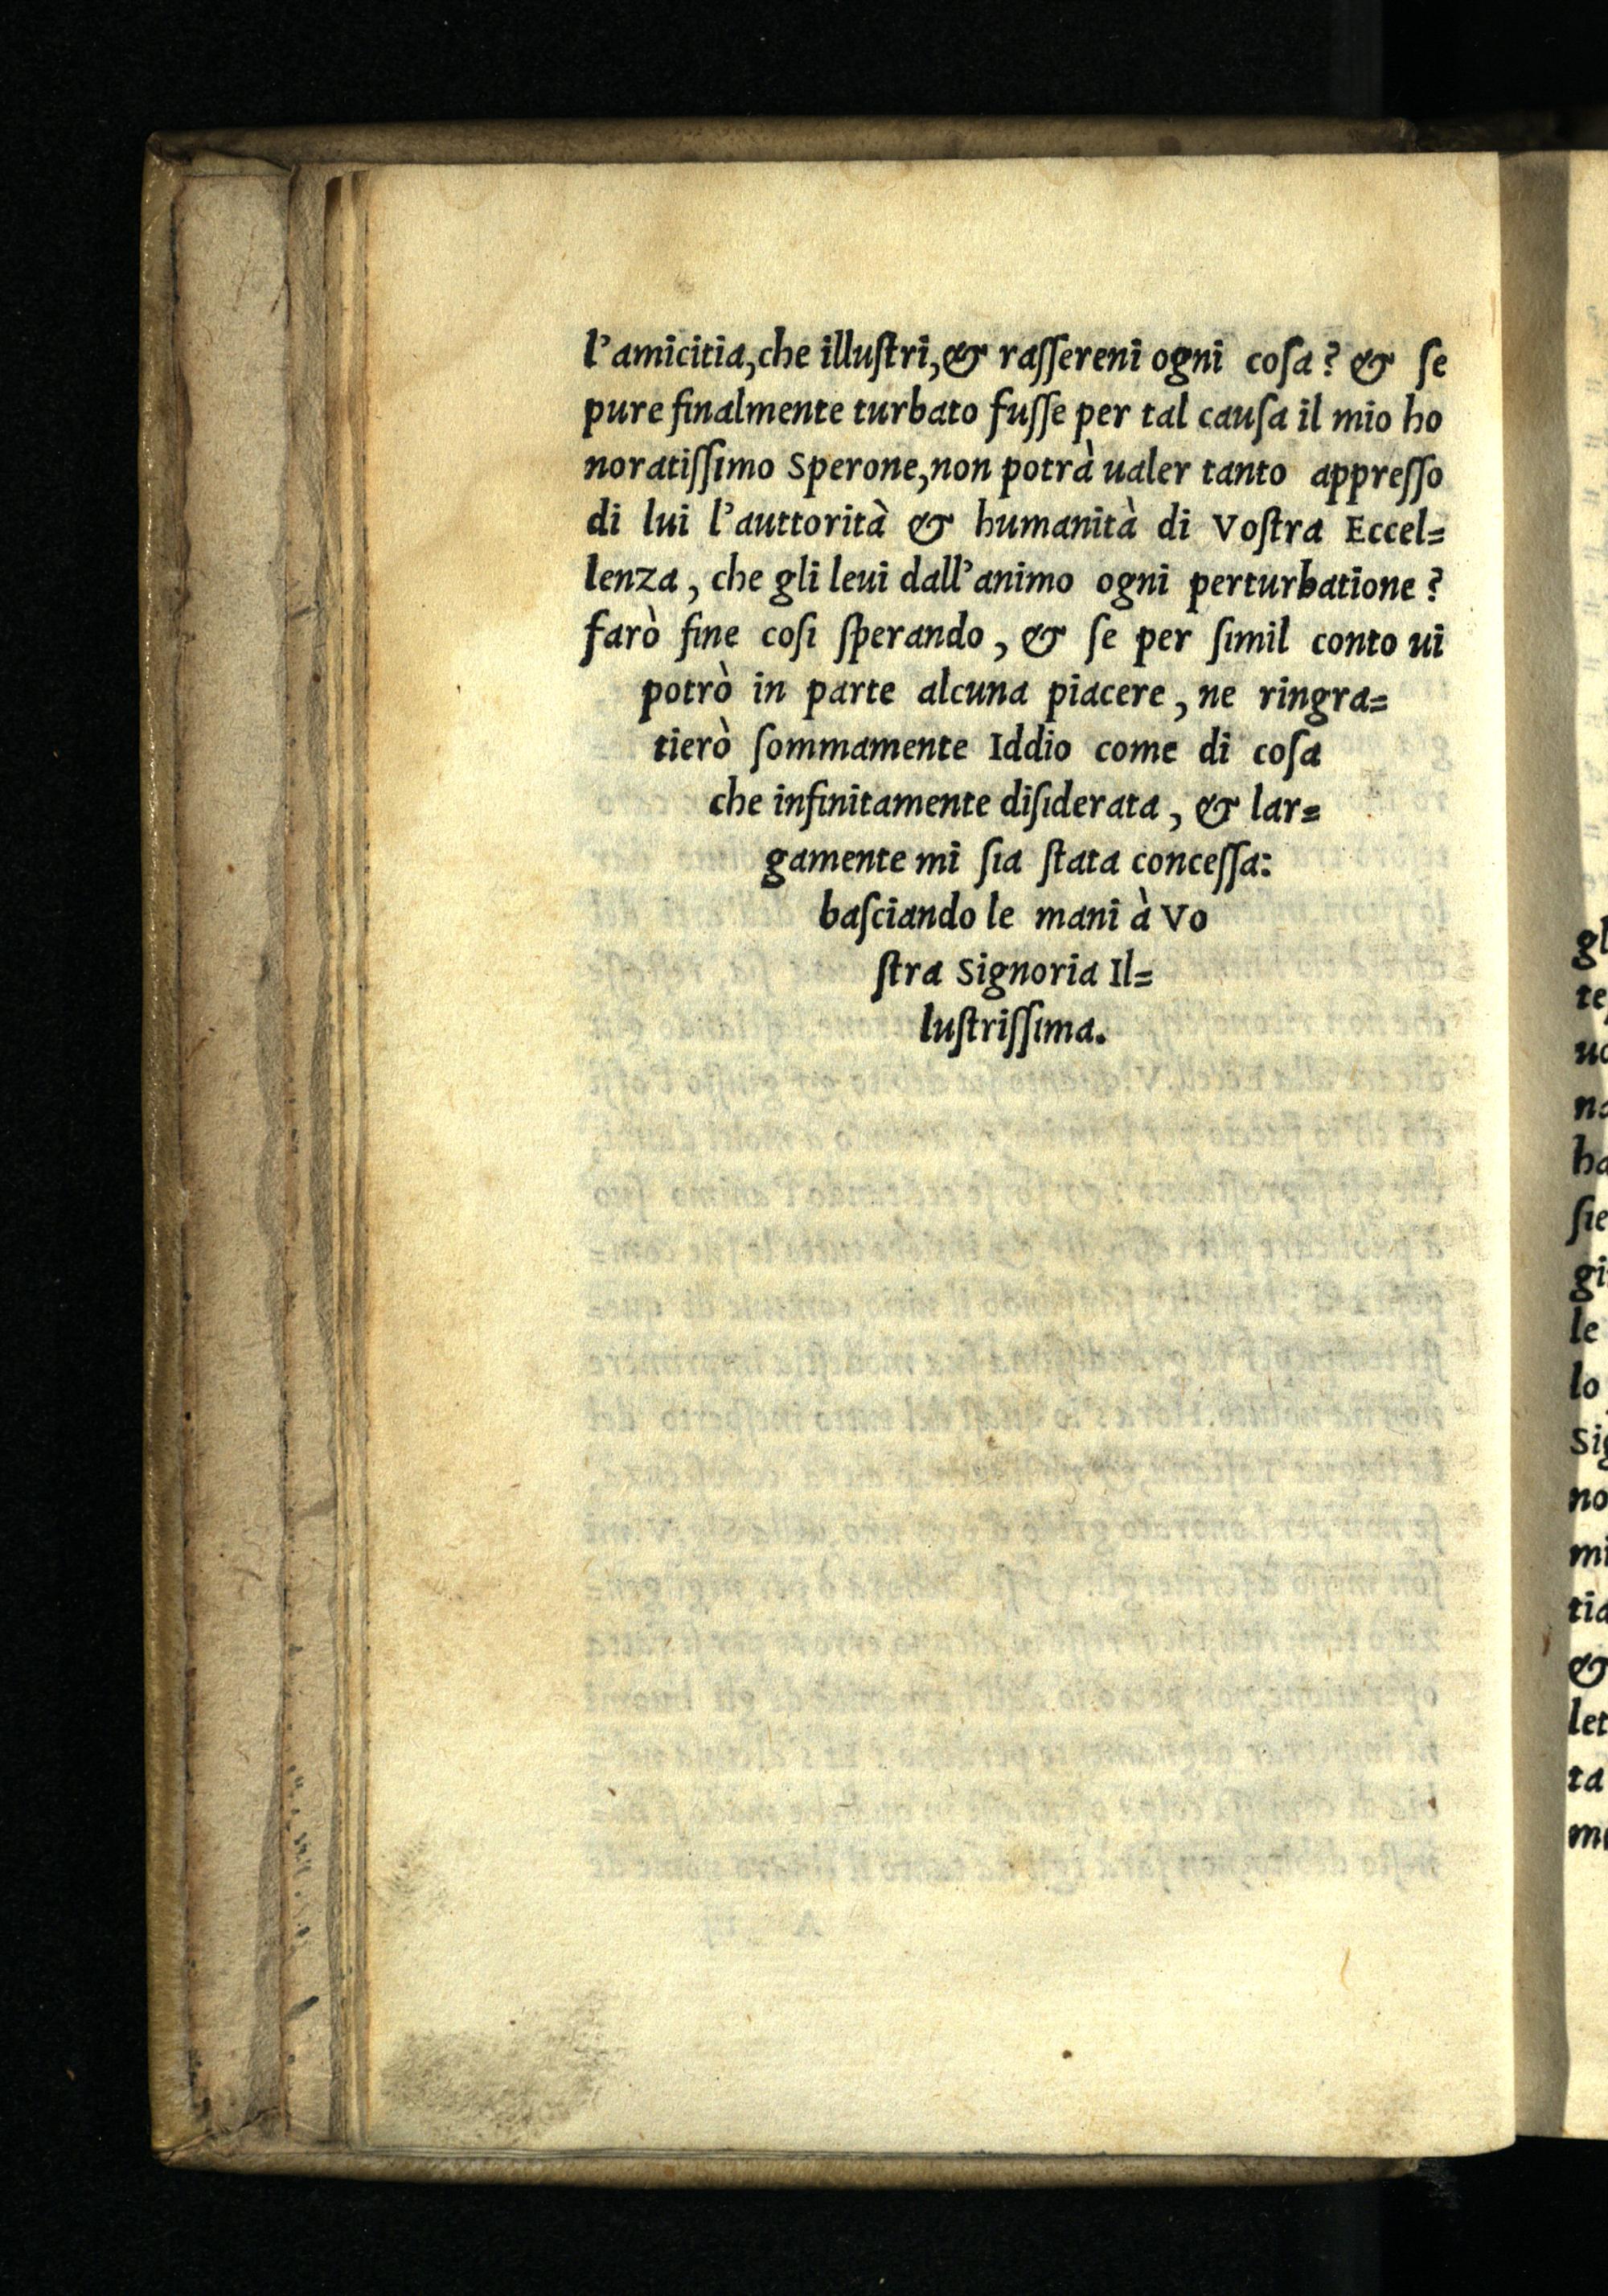 l'amicitia,che illuſtri,& raſſereni ogni coſa? & ſe
pure finalmente turbato fuſſe per tal cauſa il mio ho
noratiſſimo Sperone,non potrà ualer tanto appreſſo
di lui l'auttorità & humanità di Voſtra Eccel=
lenza, che gli leui dall'animo ogni perturbatione?
farò fine coſi ſperando, & ſe per ſimil conto ui
potrò in parte alcuna piacere, ne ringra=
tierò ſommamente Iddio come di coſa
che infinitamente diſiderata, & lar=
gamente mi ſia ſtata conceſſa:
baſciando le mani à Vo
ſtra Signoria Il=
luſtriſſima.
gl
te
uo
na
ha
ſie
gi
le
lo
Sig
no
mi
tia
&
let
ta